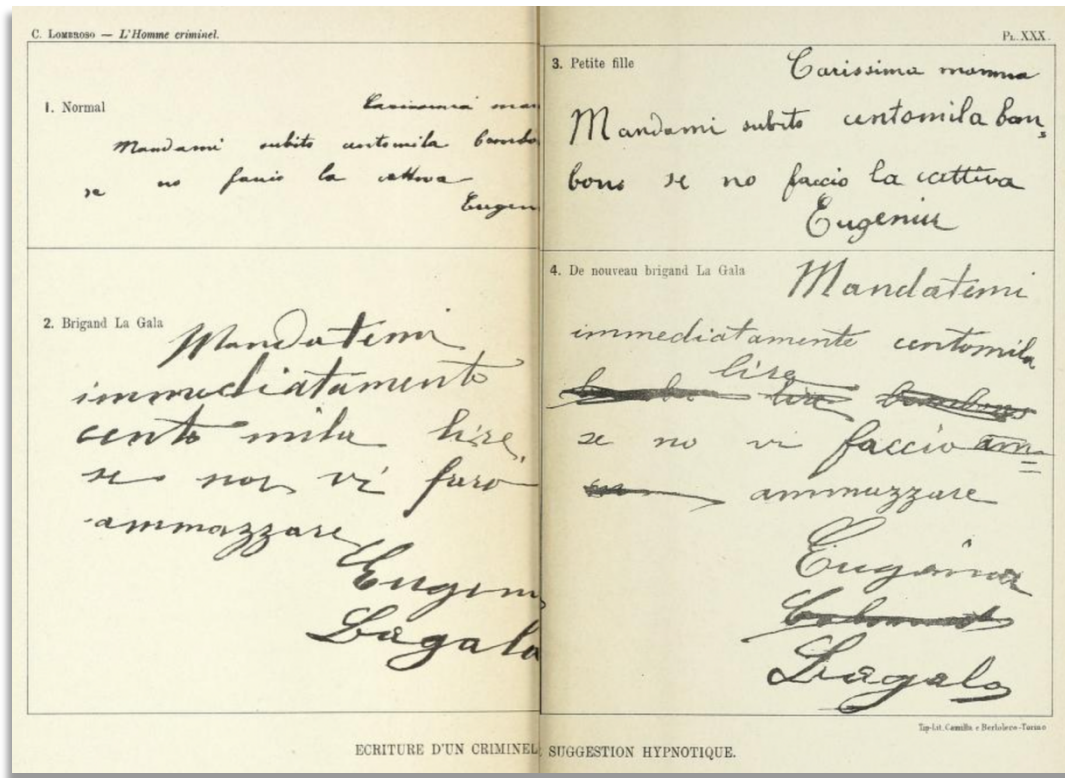 C. LOMBROSO — L'Homme criminel.
PL. XXX.
1. Normal
Carissima mam
Mandami subito centomila bombo
se no faccio la cattiva
Eugen
2. Brigand La Gala
Mandatemi
immediatamente
cento mila lire,
se non vi farò
ammazzare
Eugen
Lagala
3. Petite fille
Carissima mamma
Mandami subito centomila bon-
boni se no faccio la cattiva
Eugeniu
4. De nouveau brigand La Gala
Mandatemi
immediatamente centomila
lire
lire
se no vi faccio am-
ammazzare
Eugenio
Lagala
Tip-Lit. Camilla e Bertolero-Torino
ECRITURE D'UN CRIMINEL, SUGGESTION HYPNOTIQUE.